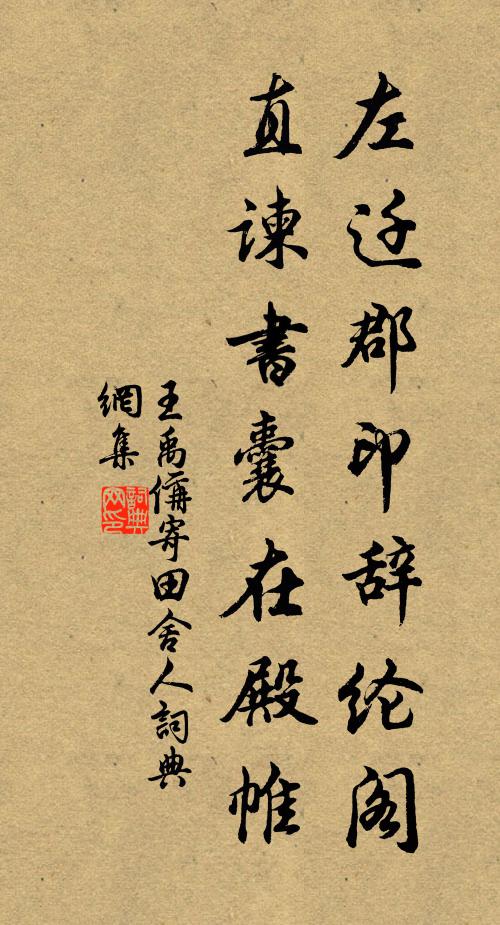 左迁郡印辞纶阁
直谏書囊在殿帷
王禹偁寄田舍人詞典
網集
詞典
网印